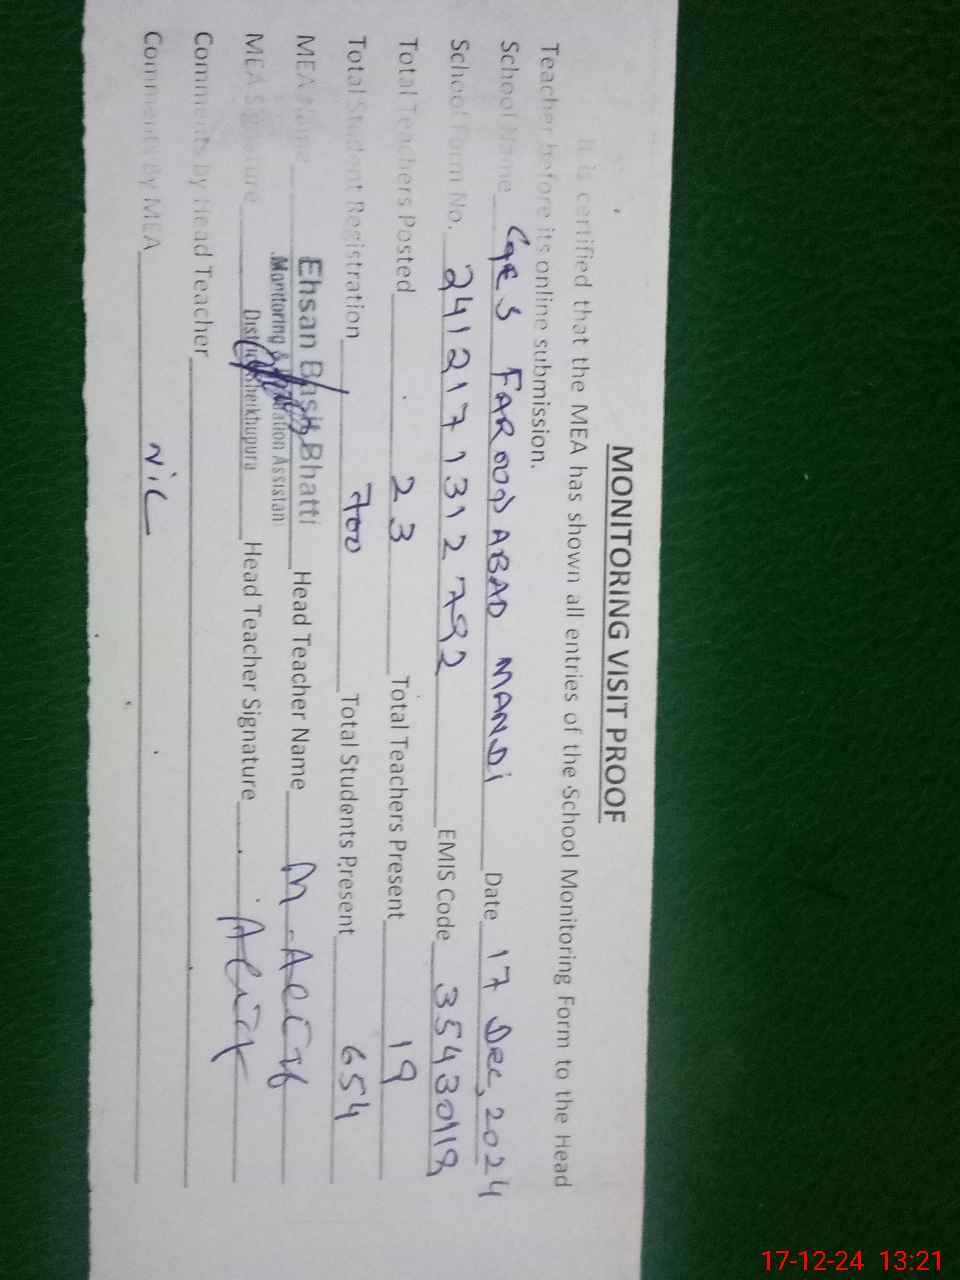 MONITORING VISIT PROOF
It is certified that the MEA has shown all entries of the School Monitoring Form to the Head
Teacher before its online submission.
School Name CGES FAROOQABAD MANDI Date 17 Dec, 2024
School Form No. 2412171312792 EMIS Code 35430119
Total Teachers Posted 23 Total Teachers Present 19
Total Student Registration 700 Total Students Present 654
MEA Name Ehsan Basit Bhatti Head Teacher Name
Monitoring & Assistan
MEA Signature District Sheikhupura Head Teacher Signature
Comments by Head Teacher
Comments By MEA NiL
17-12-24 13:21